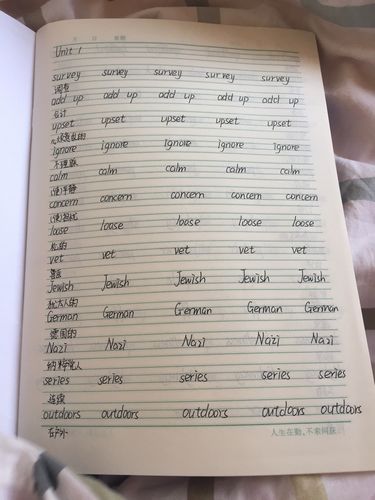 Unit 1
survey survey survey survey survey
调查
add up add up add up add up add up
合计
upset upset upset upset upset
心烦意乱的
ignore ignore ignore ignore ignore
不理睬
calm calm calm calm calm
(使)平静
concern concern concern concern concern
(使)担忧
loose loose loose loose loose
松的
vet vet vet vet vet
兽医
Jewish Jewish Jewish Jewish Jewish
犹太人的
German German German German German
德国的
Nazi Nazi Nazi Nazi Nazi
纳粹党人
series series series series series
连续
outdoors outdoors outdoors outdoors outdoors
在户外
人生在勤，不索何获